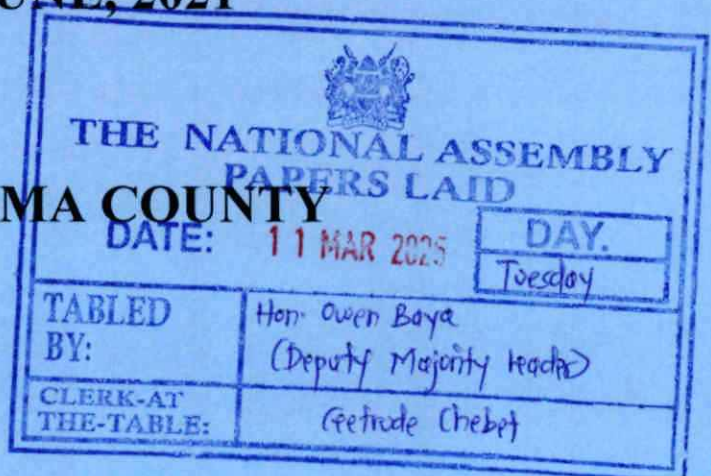 UNE, 2021
THE NATIONAL ASSEMBLY
PAPERS LAID
MA COUNTY
DATE: 11 MAR 2025 DAY.
Tuesday
TABLED BY: Hon. Owen Baya
(Deputy Majority Leader)
CLERK-AT
THE-TABLE: Getrude Chebet